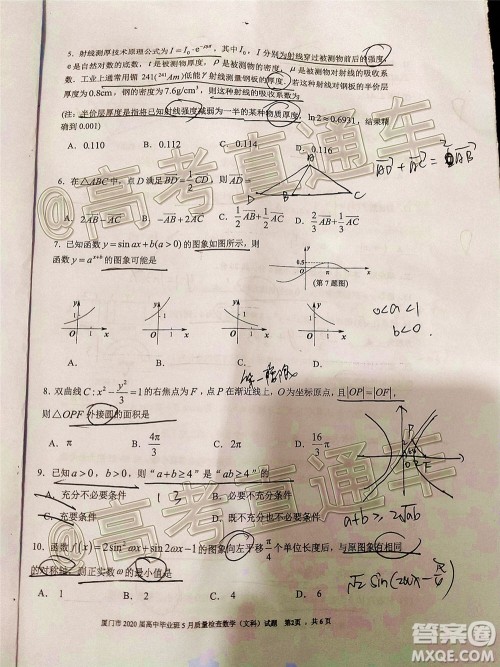 5. 射线测厚技术原理公式为 I = I₀·e^(-ρμt)，其中 I₀，I 分别为射线穿过被测物前后的强度，
e 是自然对数的底数，t 为被测物厚度，ρ 为被测物的密度，μ 是被测物对射线的吸收系
数．工业上通常用镅 241(²⁴¹Am)低能 γ 射线测量钢板的厚度．若这种射线对钢板的半价层
厚度为 0.8cm，钢的密度为 7.6g/cm³，则这种射线的吸收系数为
(注：半价层厚度是指将已知射线强度减弱为一半的某种物质厚度，ln2≈0.6931，结果精
确到 0.001)
A．0.110 B．0.112 C．0.114 D．0.116
6. 在△ABC中，点 D 满足 BD = 1/2 CD，则 AD
A．2AB - AC B．-AB + 2AC C．1/2 AB + 1/2 AC D．2/3 AB + 1/3 AC
7. 已知函数 y = sin ax + b(a > 0) 的图象如图所示，则
函数 y = a^(x+b) 的图象可能是
0.5
(第 7 题图)
A． B． C． D．
0<a<1
b<0
8. 双曲线 C: x² - y²/3 = 1 的右焦点为 F，点 P 在渐近线上，O 为坐标原点，且|OP|=|OF|，
则△OPF 外接圆的面积是
A．π B．4π/3 C．2π D．16/3 π
9. 已知 a>0，b>0，则“a+b≥4”是“ab≥4”的
A．充分不必要条件 B．必要不充分条件
C．充要条件 D．既不充分也不必要条件
1 3
a+b≥2√ab
10. 函数 f(x) = 2sin²ωx + sin2ωx - 1 的图象向左平移 π/4 个单位长度后，与原图象有相同
的对称轴，则正实数 ω 的最小值是
A．1 B．2 C．4 D．6
√2 sin(2ωx - π/4)
厦门市 2020 届高中毕业班 5 月质量检查数学（文科）试题 第2页，共 6 页
@高考直通车
@高考直通车
作业帮
zuoyebang.com